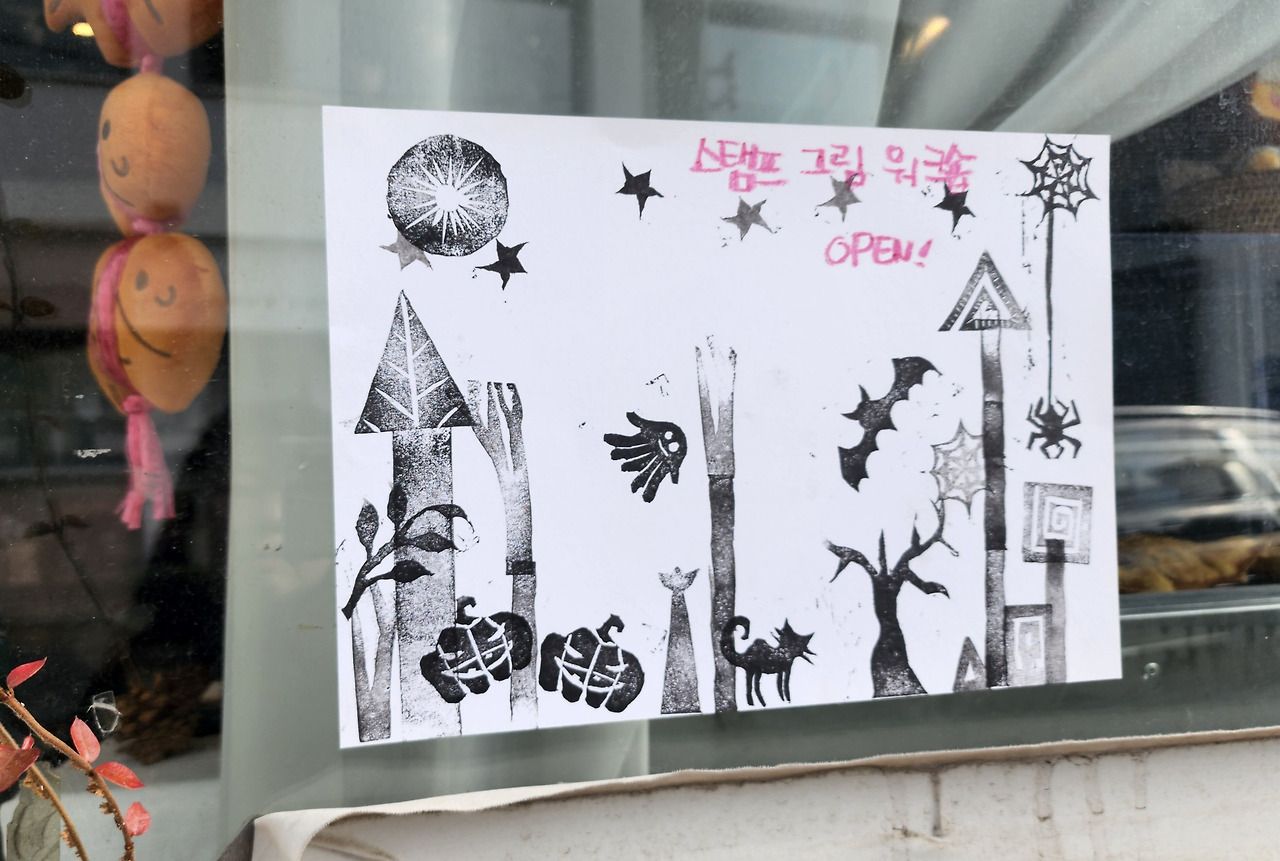 스탬프 그림 워크숍
OPEN!